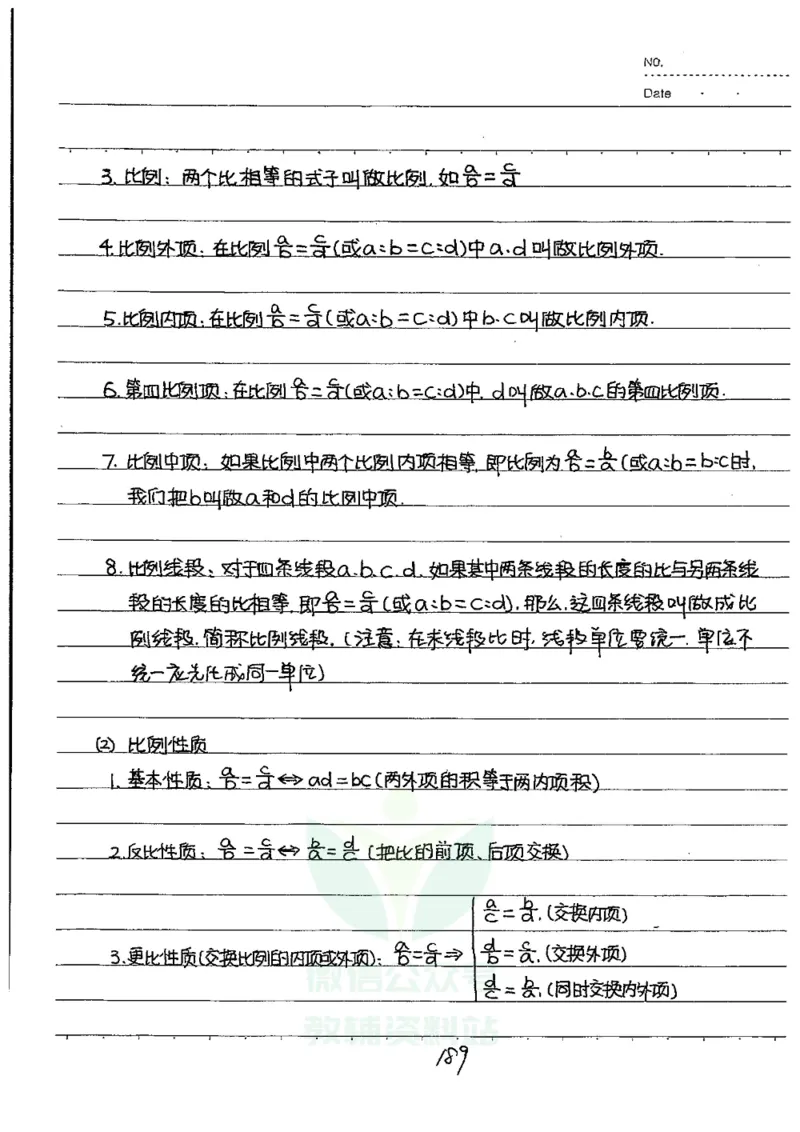 NO.
Date
3. 比例：两个比相等的式子叫做比例，如a/b=c/d
4. 比例外项：在比例a/b=c/d(或a:b=c:d)中a、d叫做比例外项.
5. 比例内项：在比例a/b=c/d(或a:b=c:d)中b、c叫做比例内项.
6. 第四比例项：在比例a/b=c/d(或a:b=c:d)中，d叫做a、b、c的第四比例项.
7. 比例中项：如果比例中两个比例内项相等，即比例为a/b=b/d(或a:b=b:c时，
我们把b叫做a和d的比例中项.
8. 比例线段：对于四条线段a、b、c、d，如果其中两条线段的长度的比与另两条线
段的长度的比相等，即a/b=c/d(或a:b=c:d)，那么，这四条线段叫做成比
例线段，简称比例线段.(注意：在求线段比时，线段单位要统一，单位不
统一应先化成同一单位)
(2) 比例性质
1. 基本性质：a/b=c/d⇔ad=bc(两外项的积等于两内项积)
2. 反比性质：a/b=c/d⇔b/a=d/c(把比的前项、后项交换)
a/c=b/d，(交换内项)
3. 更比性质(交换比例的内项或外项)：a/b=c/d⇒ d/b=c/a，(交换外项)
d/c=b/a，(同时交换内外项)
微信公众号
教辅资料站
189